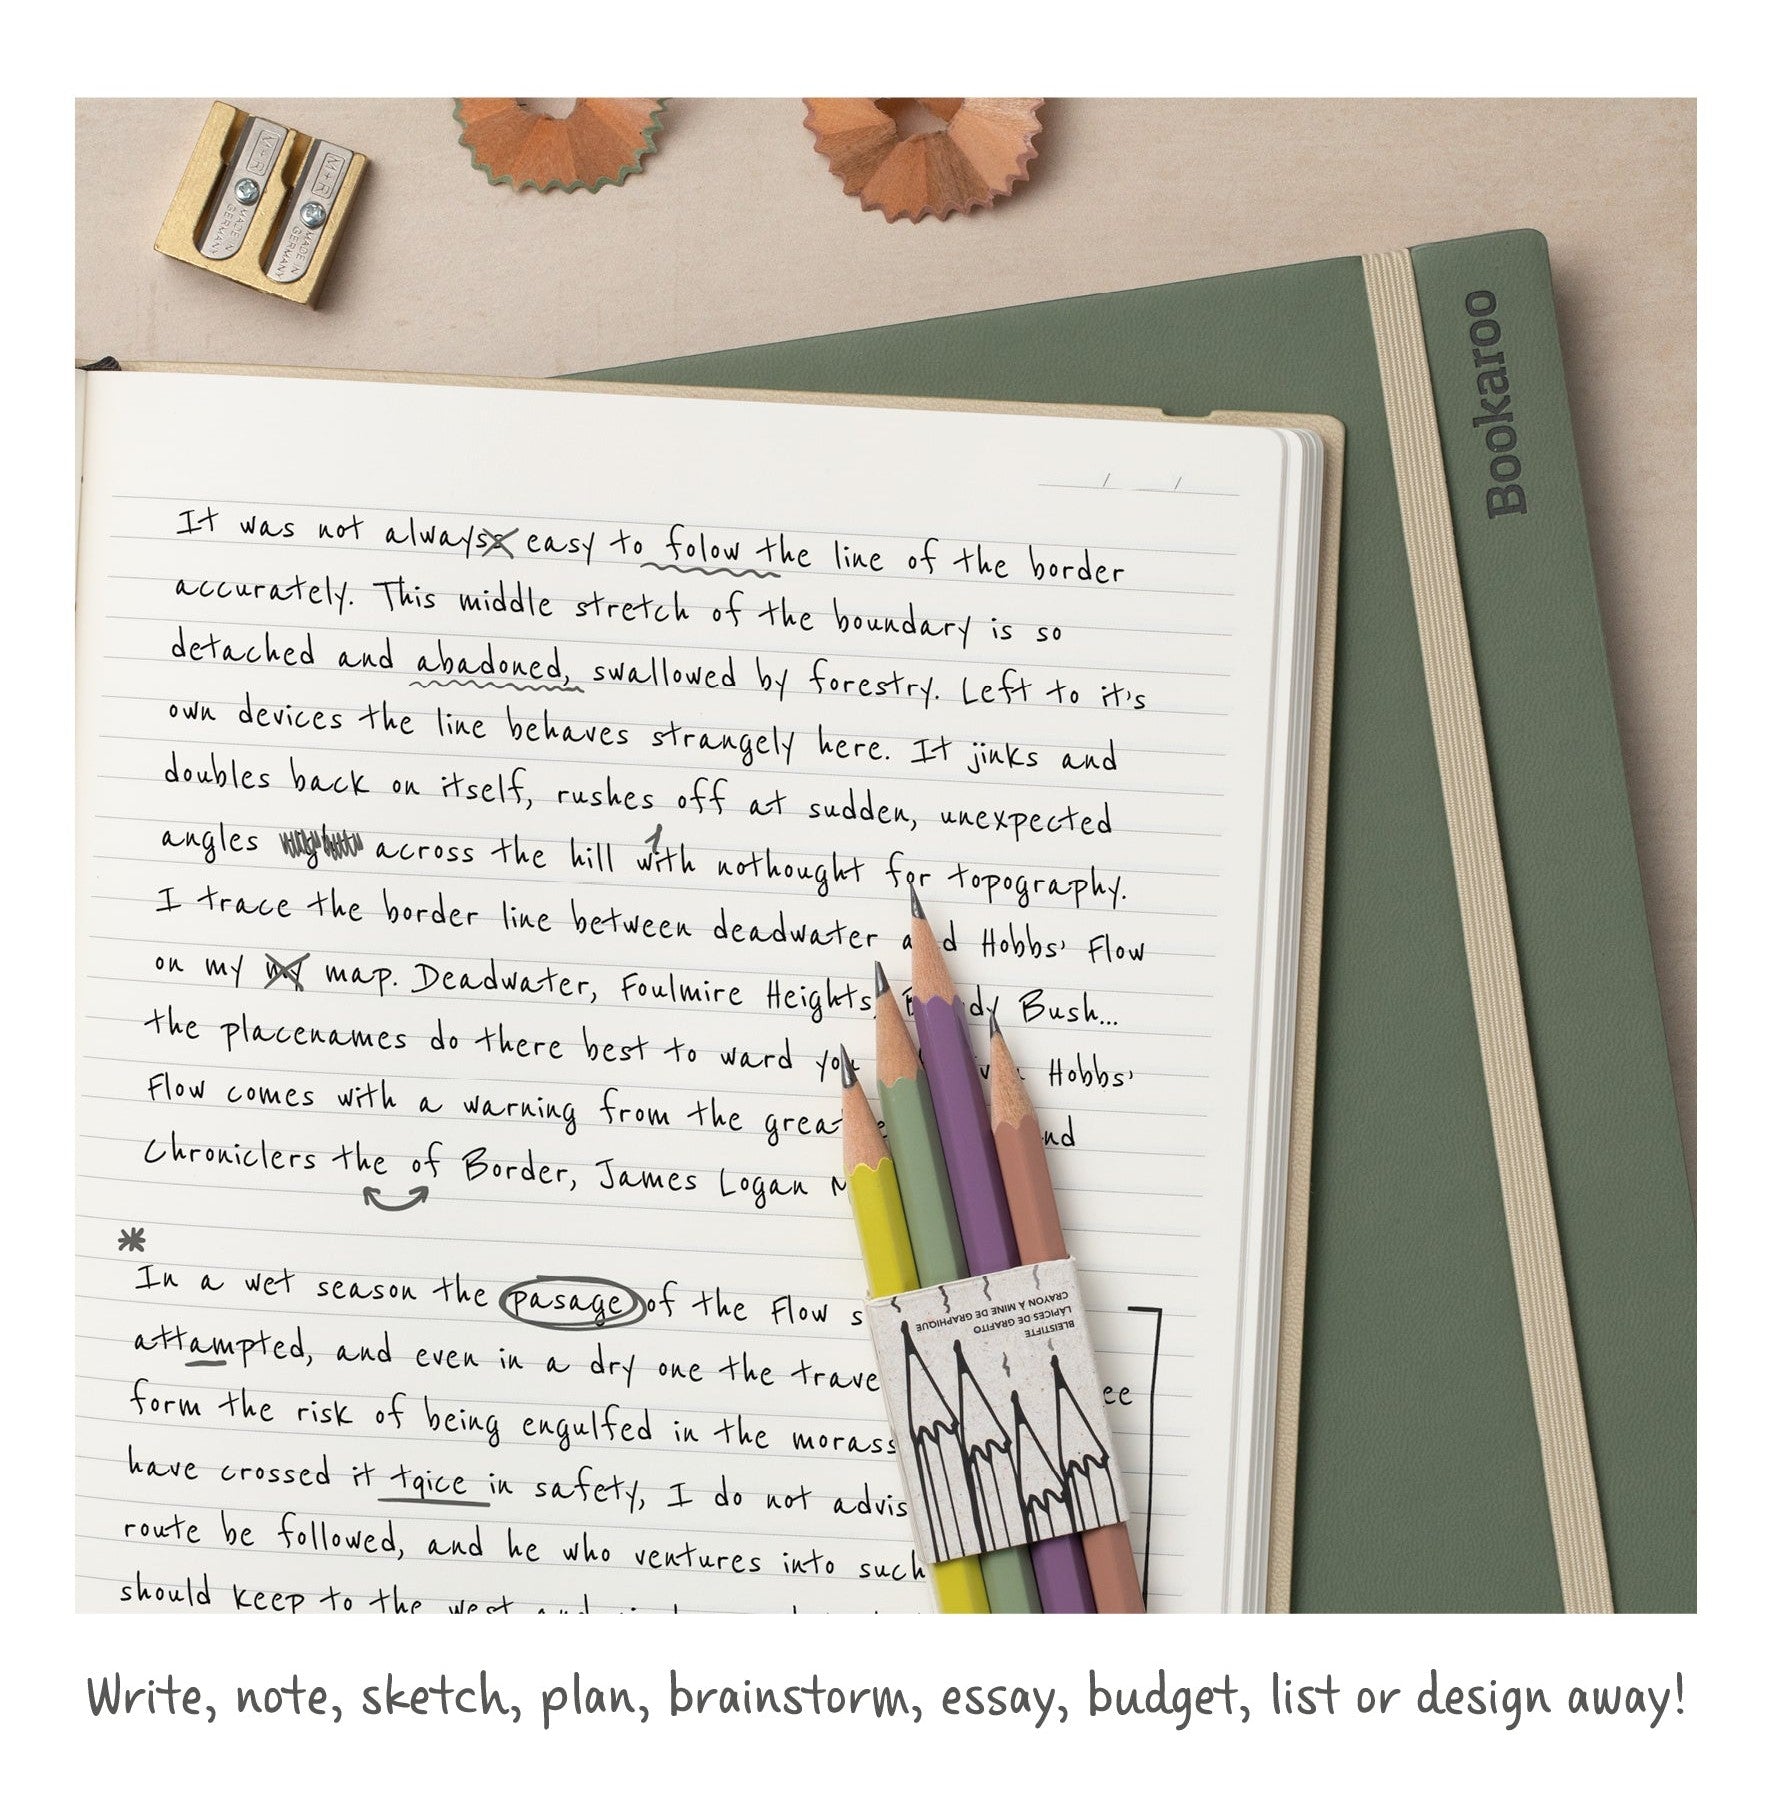 M+R
MADE IN GERMANY
M+R
MADE IN GERMANY
Bookaroo
It was not alwayss easy to folow the line of the border
accurately. This middle stretch of the boundary is so
detached and abadoned, swallowed by forestry. Left to it's
own devices the line behaves strangely here. It jinks and
doubles back on itself, rushes off at sudden, unexpected
angles across the hill wth nothought for topography.
I trace the border line between deadwater and Hobbs' Flow
on my my map. Deadwater, Foulmire Heights, Bush...
the placenames do there best to ward you Hobbs'
Flow comes with a warning from the great
Chroniclers the of Border, James Logan
*
In a wet season the pasage of the Flow
attampted, and even in a dry one the
form the risk of being engulfed in the morass
have crossed it tqice in safety, I do not
route be followed, and he who ventures into such
should keep to the west and
BLEISTIFTE
LÁPICES DE GRAFITO
CRAYON À MINE DE GRAPHIQUE
Write, note, sketch, plan, brainstorm, essay, budget, list or design away!